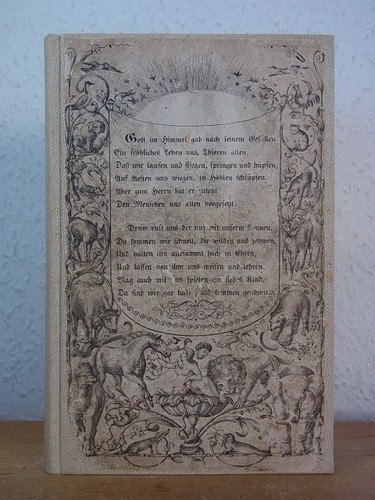 Gott im Himmel gab nach seinem Gefallen
Ein fröhliches Leben uns Thieren allen.
Daß wir laufen und fliegen, springen und hüpfen,
Auf Aesten uns wiegen, in Höhlen schlüpfen.
Aber zum Herrn hat er zuletzt
Den Menschen uns allen vorgesetzt.
Drum ruft uns der nur mit unserm Namen,
Da kommen wir schnell, die wilden und zahmen,
Und halten ihn allesammt hoch in Ehren,
Und lassen von ihm uns weisen und lehren.
Mag auch mit uns spielen ein lieb's Kind,
Da sind wir gar lustig, und kommen geschwind.